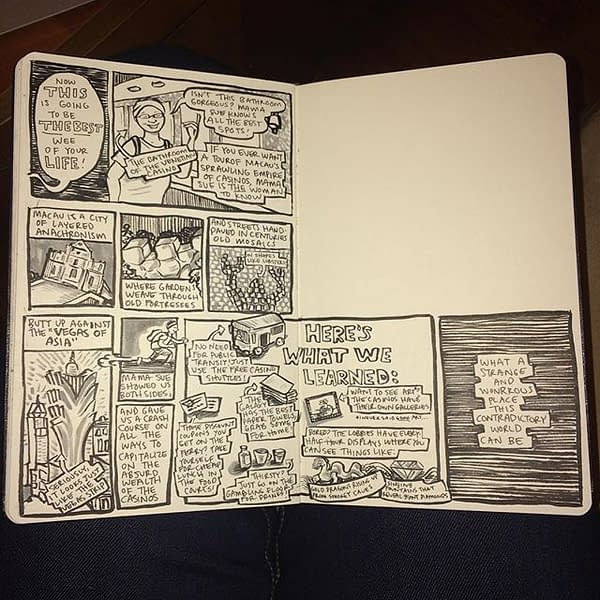 NOW
THIS
IS GOING
TO BE
THE BEST
WEE
OF YOUR
LIFE!
ISN'T THIS BATHROOM
GORGEOUS? MAMA
SUE KNOWS
ALL THE BEST
SPOTS!
THE BATHROOM
OF THE VENETIAN
CASINO
IF YOU EVER WANT
A TOUR OF MACAU'S
SPRAWLING EMPIRE
OF CASINOS, MAMA
SUE IS THE WOMAN
TO KNOW
MACAU IS A CITY
OF LAYERED
ANACHRONISM
WHERE GARDENS
WEAVE THROUGH
OLD FORTRESSES
AND STREETS HAND-
PAVED IN CENTURIES
OLD MOSAICS
IN SHAPES
LIKE LOBSTERS
BUTT UP AGAINST
THE "VEGAS OF
ASIA"
SERIOUSLY,
IT LOOKS JUST
LIKE THE
VEGAS STRIP
MAMA SUE
SHOWED US
BOTH SIDES.
AND GAVE
US A CRASH
COURSE ON
ALL THE
WAYS TO
CAPITALIZE
ON THE
ABSURD
WEALTH
OF THE
CASINOS
HERE'S
WHAT WE
LEARNED:
NO NEED
FOR PUBLIC
TRANSIT! JUST
USE THE FREE CASINO
SHUTTLES!
THOSE DISCOUNT
COUPONS YOU
GET ON THE
FERRY? TAKE
YOURSELF
FOR CHEAP
LUNCH IN
THE FOOD
COURTS!
THE
GALAXY
HAS THE BEST
PAPER TOWELS.
GRAB SOME
FOR HOME!
THIRSTY?
JUST GO ON THE
GAMBLING FLOOR
FOR DRINKS
WANT TO SEE ART?
THE CASINOS HAVE
THEIR OWN GALLERIES
BORED? THE LOBBIES HAVE EVERY
HALF-HOUR DISPLAYS WHERE YOU
CAN SEE THINGS LIKE:
GOLD DRAGONS RISING UP
FROM SMOKEY CAVES
REVEAL GIANT DIAMONDS
WHAT A
STRANGE
AND
WONDROUS
PLACE
THIS
CONTRADICTORY
WORLD
CAN BE